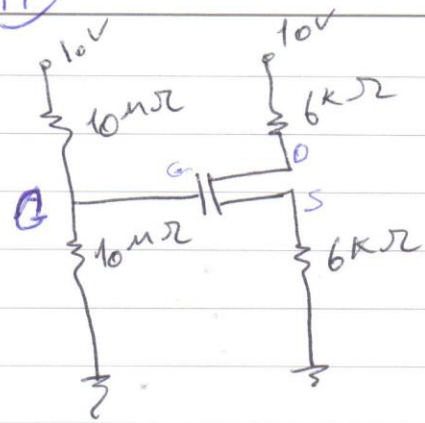 10V
10V
10MΩ
6KΩ
G
D
G
S
10MΩ
6KΩ